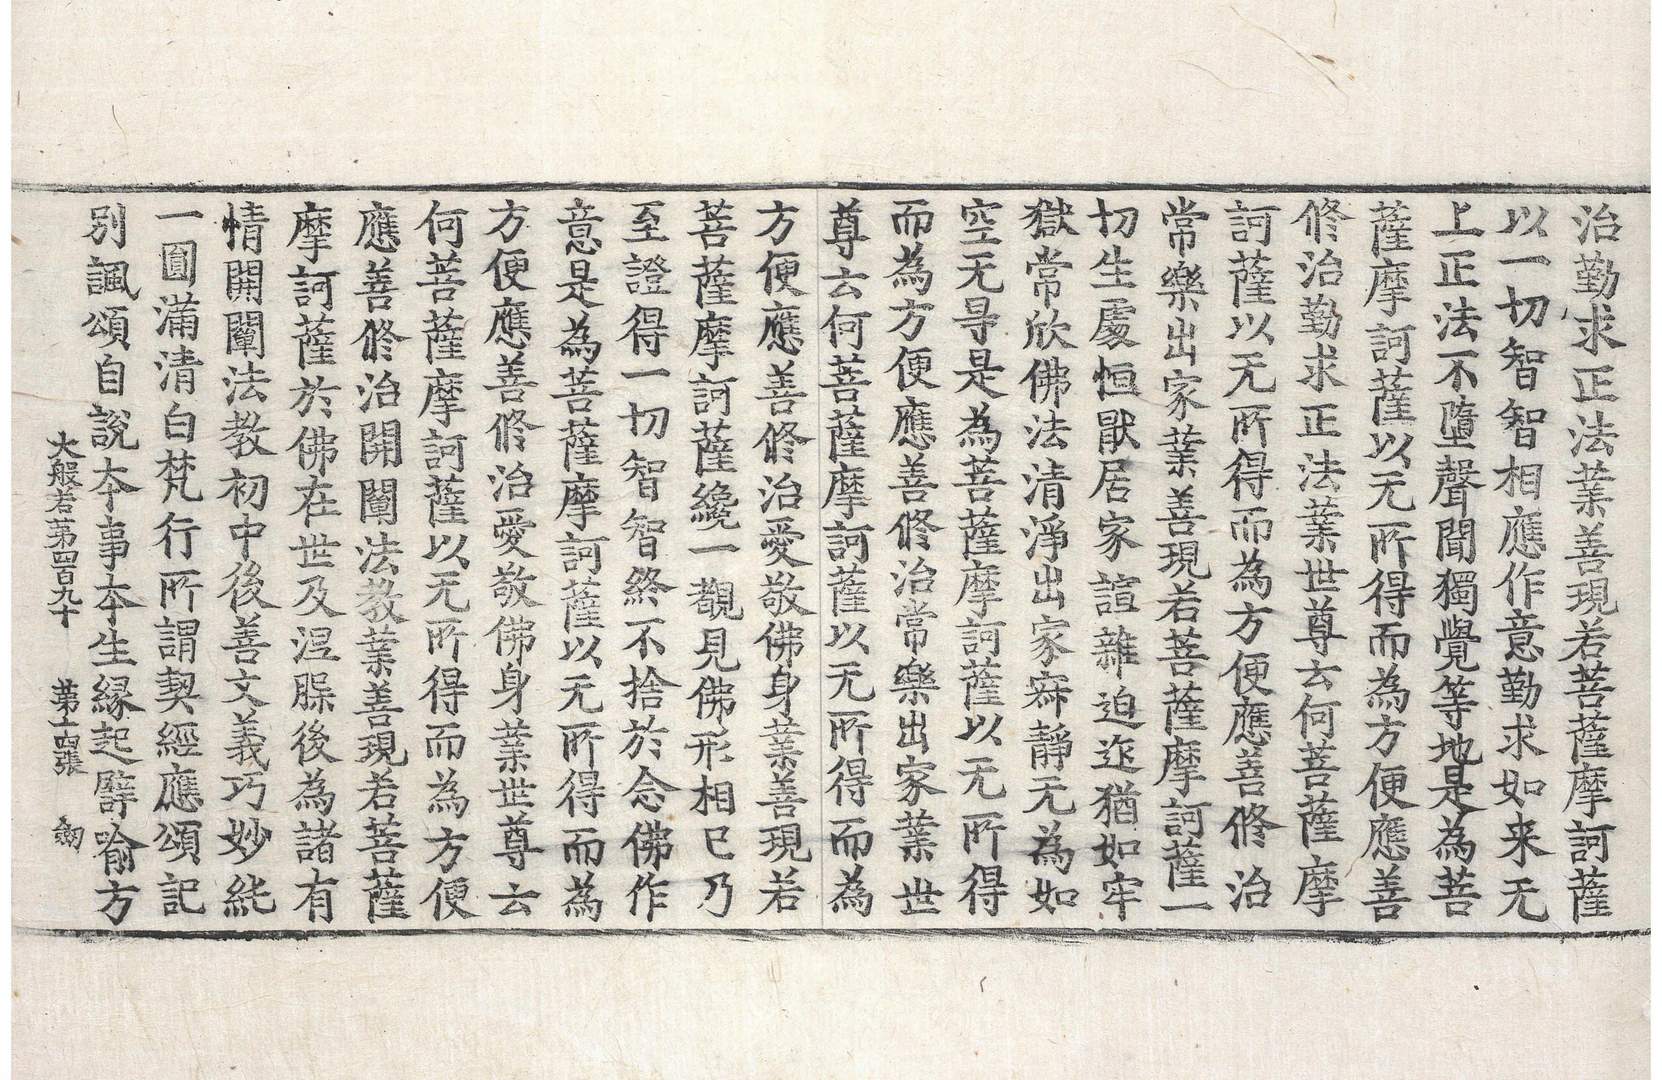 治勤求正法業善現若菩薩摩訶薩
以一切智智相應作意勤求如来无
上正法不墮聲聞獨覺等地是為菩
薩摩訶薩以无所得而為方便應善
修治勤求正法業世尊云何菩薩摩
訶薩以无所得而為方便應善修治
常樂出家業善現若菩薩摩訶薩一
切生處恒猒居家諠雜迫迮猶如牢
獄常欣佛法清淨出家寂靜无為如
空无㝵是為菩薩摩訶薩以无所得
而為方便應善修治常樂出家業世
尊云何菩薩摩訶薩以无所得而為
方便應善修治愛敬佛身業善現若
菩薩摩訶薩纔一覩見佛形相已乃
至證得一切智智終不捨於念佛作
意是為菩薩摩訶薩以无所得而為
方便應善修治愛敬佛身業世尊云
何菩薩摩訶薩以无所得而為方便
應善修治開闡法教業善現若菩薩
摩訶薩於佛在世及涅槃後為諸有
情開闡法教初中後善文義巧妙純
一圓滿清白梵行所謂契經應頌記
別諷頌自說本事本生緣起譬喻方
大般若第四百九十　第十四張